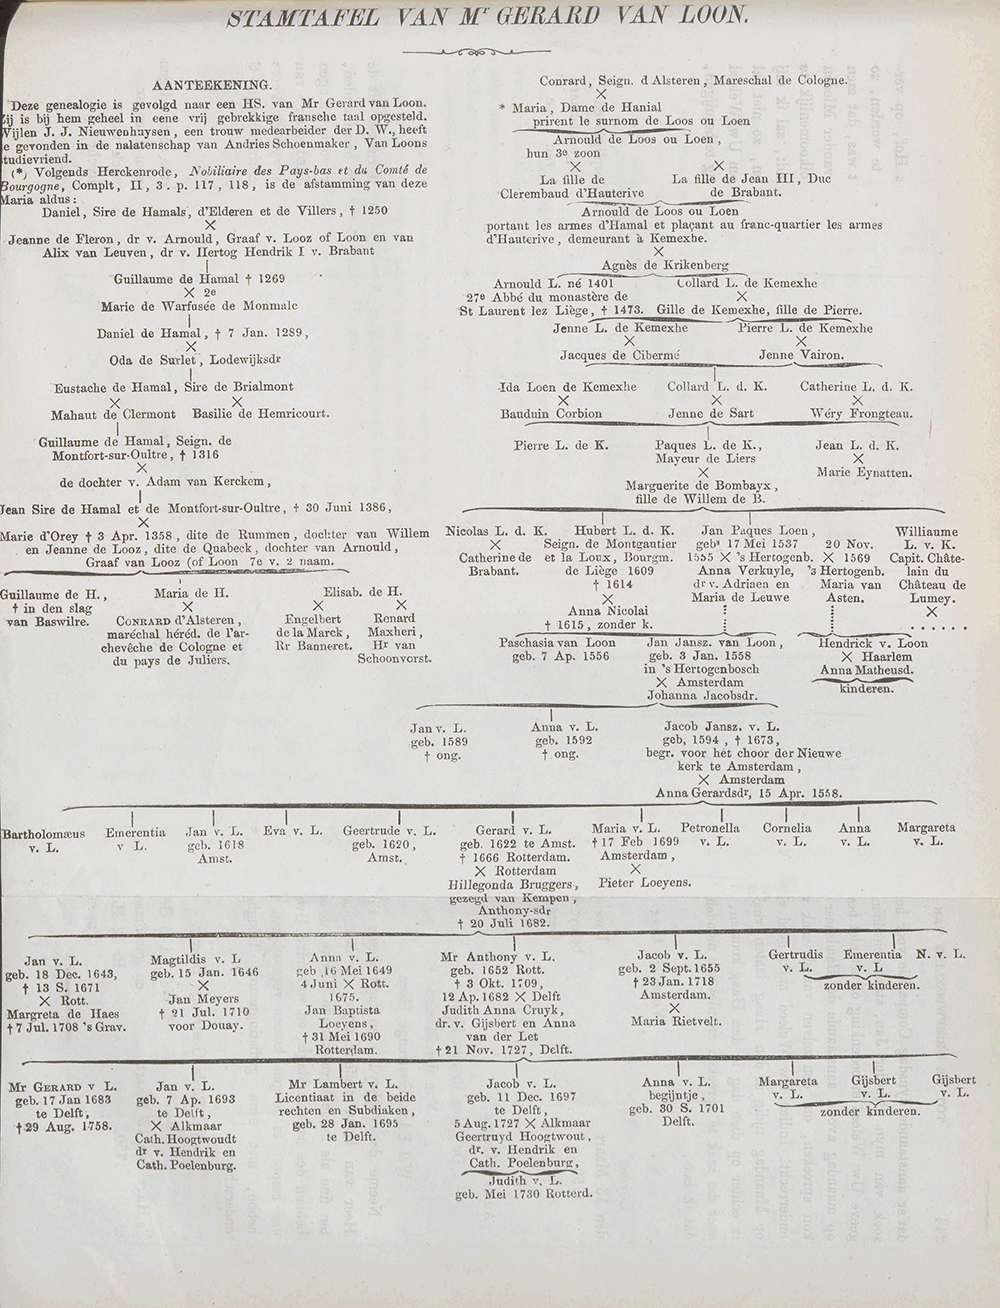 STAMTAFEL VAN Mr GERARD VAN LOON.
AANTEEKENING.
Deze genealogie is gevolgd naar een HS. van Mr Gerard van Loon.
Zij is bij hem geheel in eene vrij gebrekkige fransche taal opgesteld.
Wijlen J. J. Nieuwenhuysen, een trouw medearbeider der D. W., heeft
ze gevonden in de nalatenschap van Andries Schoenmaker, Van Loons
studievriend.
(*) Volgends Herckenrode, Nobiliaire des Pays-bas et du Comté de
Bourgogne, Complt, II, 3. p. 117, 118, is de afstamming van deze
Maria aldus:
Daniel, Sire de Hamals, d'Elderen et de Villers, † 1250
×
Jeanne de Fleron, dr v. Arnould, Graaf v. Looz of Loon en van
Alix van Leuven, dr v. Hertog Hendrik I v. Brabant
Guillaume de Hamal † 1269
× 2e
Marie de Warfusée de Monmale
Daniel de Hamal, † 7 Jan. 1289,
×
Oda de Surlet, Lodewijksdr
Eustache de Hamal, Sire de Brialmont
× ×
Mahaut de Clermont Basilie de Hemricourt.
Guillaume de Hamal, Seign. de
Montfort-sur-Oultre, † 1316
×
de dochter v. Adam van Kerckem,
Jean Sire de Hamal et de Montfort-sur-Oultre, † 30 Juni 1386,
×
Marie d'Orey † 3 Apr. 1358, dite de Rummen, dochter van Willem
en Jeanne de Looz, dite de Quabeck, dochter van Arnould,
Graaf van Looz (of Loon 7e v. 2 naam.
Guillaume de H.,
† in den slag
van Baswilre.
Maria de H.
×
CONRARD d'Alsteren,
maréchal héréd. de l'ar-
chevêche de Cologne et
du pays de Juliers.
Elisab. de H.
× ×
Engelbert
de la Marck,
Rr Banneret.
Renard
Maxheri,
Hr van
Schoonvorst.
Conrard, Seign. d Alsteren, Mareschal de Cologne.
×
* Maria, Dame de Hanial
prirent le surnom de Loos ou Loen
Arnould de Loos ou Loen,
hun 3e zoon
× ×
La fille de
Clerembaud d'Hauterive
La fille de Jean III, Duc
de Brabant.
Arnould de Loos ou Loen
portant les armes d'Hamal et plaçant au franc-quartier les armes
d'Hauterive, demeurant à Kemexhe.
×
Agnès de Krikenberg
Arnould L. né 1401
27e Abbé du monastère de
St Laurent lez Liège, † 1473.
Collard L. de Kemexhe
×
Gille de Kemexhe, fille de Pierre.
Jenne L. de Kemexhe
×
Jacques de Cibermé
Pierre L. de Kemexhe
×
Jenne Vairon.
Ida Loen de Kemexhe
×
Bauduin Corbion
Collard L. d. K.
×
Jenne de Sart
Catherine L. d. K.
×
Wéry Frongteau.
Pierre L. de K.
Paques L. de K.,
Mayeur de Liers
×
Marguerite de Bombayx,
fille de Willem de B.
Jean L. d. K.
×
Marie Eynatten.
Nicolas L. d. K.
×
Catherine de
Brabant.
Hubert L. d. K.
Seign. de Montgautier
et la Loux, Bourgm.
de Liège 1609
† 1614
×
Anna Nicolai
† 1615, zonder k.
Jan Paques Loen,
gebs 17 Mei 1537
1555 × 's Hertogenb.
Anna Verkuyle,
dr v. Adriaen en
Maria de Leuwe
20 Nov.
× 1569
's Hertogenb.
Maria van
Asten.
Williaume
L. v. K.
Capit. Châte-
lain du
Château de
Lumey.
×
. . . . . .
Paschasia van Loon
geb. 7 Ap. 1556
Jan Jansz. van Loon,
geb. 3 Jan. 1558
in 's Hertogenbosch
× Amsterdam
Johanna Jacobsdr.
Hendrick v. Loon
× Haarlem
Anna Matheusd.
kinderen.
Jan v. L.
geb. 1589
† ong.
Anna v. L.
geb. 1592
† ong.
Jacob Jansz. v. L.
geb, 1594, † 1673,
begr. voor het choor der Nieuwe
kerk te Amsterdam,
× Amsterdam
Anna Gerardsdr, 15 Apr. 1558.
Bartholomæus
v. L.
Emerentia
v L.
Jan v. L.
geb. 1618
Amst.
Eva v. L.
Geertrude v. L.
geb. 1620,
Amst.
Gerard v. L.
geb. 1622 te Amst.
† 1666 Rotterdam.
× Rotterdam
Hillegonda Bruggers,
gezegd van Kempen,
Anthony-sdr
† 20 Juli 1682.
Maria v. L.
† 17 Feb 1699
Amsterdam,
×
Pieter Loeyens.
Petronella
v. L.
Cornelia
v. L.
Anna
v. L.
Margareta
v. L.
Jan v. L.
geb. 18 Dec. 1643,
† 13 S. 1671
× Rott.
Margreta de Haes
† 7 Jul. 1708 's Grav.
Magtildis v. L
geb. 15 Jan. 1646
×
Jan Meyers
† 21 Jul. 1710
voor Douay.
Anna v. L.
geb. 16 Mei 1649
4 Juni × Rott.
1675.
Jan Baptista
Loeyens,
† 31 Mei 1690
Rotterdam.
Mr Anthony v. L.
geb. 1652 Rott.
† 3 Okt. 1709,
12 Ap. 1682 × Delft
Judith Anna Cruyk,
dr. v. Gijsbert en Anna
van der Let
† 21 Nov. 1727, Delft.
Jacob v. L.
geb. 2 Sept. 1655
† 23 Jan. 1718
Amsterdam.
×
Maria Rietvelt.
Gertrudis
v. L.
Emerentia
v. L
zonder kinderen.
N. v. L.
Mr GERARD v L.
geb. 17 Jan 1683
te Delft,
† 29 Aug. 1758.
Jan v. L.
geb. 7 Ap. 1693
te Delft,
× Alkmaar
Cath. Hoogtwoudt
dr v. Hendrik en
Cath. Poelenburg.
Mr Lambert v. L.
Licentiaat in de beide
rechten en Subdiaken,
geb. 28 Jan. 1695
te Delft.
Jacob v. L.
geb. 11 Dec. 1697
te Delft,
5 Aug. 1727 × Alkmaar
Geertruyd Hoogtwout,
dr. v. Hendrik en
Cath. Poelenburg,
Judith v. L.
geb. Mei 1730 Rotterd.
Anna v. L.
begijntje,
geb. 30 S. 1701
Delft.
Margareta
v. L.
Gijsbert
v. L.
Gijsbert
v. L.
zonder kinderen.